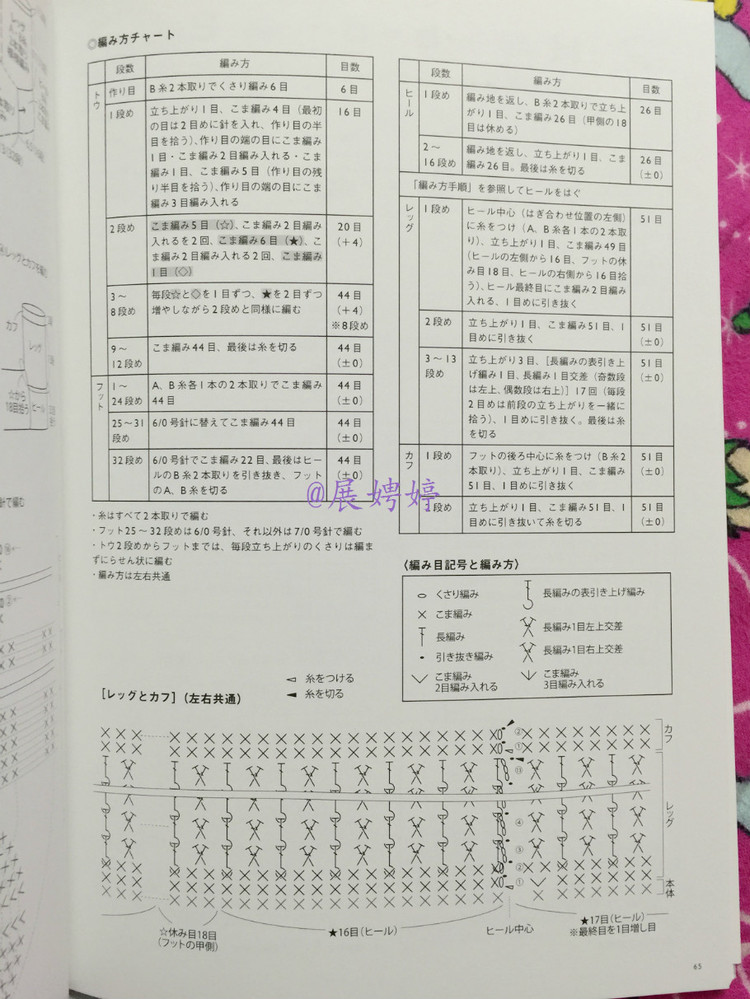 ◎編み方チャート
段数 編み方 目数
トウ
作り目 B糸2本取りでくさり編み6目 6目
1段め 立ち上がり1目、こま編み4目（最初 16目
の目は2目めに針を入れ、作り目の半
目を拾う）、作り目の端の目にこま編み
1目・こま編み2目編み入れる・こま
編み1目、こま編み5目（作り目の残
り半目を拾う）、作り目の端の目にこま
編み3目編み入れる
2段め こま編み5目（☆）、こま編み2目編み 20目
入れるを2回、こま編み6目（★）、こ (+4)
ま編み2目編み入れる2回、こま編み
1目（◇）
3～ 毎段☆と◇を1目ずつ、★を2目ずつ 44目
8段め 増やしながら2段めと同様に編む (+4)
※8段め
9～ こま編み44目、最後は糸を切る 44目
12段め (±0)
フット
1～ A、B糸各1本の2本取りでこま編み 44目
24段め 44目 (±0)
25～31 6/0号針に替えてこま編み44目 44目
段め (±0)
32段め 6/0号針でこま編み22目、最後はヒー 44目
ルのB糸2本取りを引き抜き、フット (±0)
のA、B糸を切る
・糸はすべて2本取りで編む
・フット25～32段めは6/0号針、それ以外は7/0号針で編む
・トウ2段めからフットまでは、毎段立ち上がりのくさりは編ま
ずにらせん状に編む
・編み方は左右共通
段数 編み方 目数
ヒール
1段め 編み地を返し、B糸2本取りで立ち上 26目
がり1目、こま編み26目（甲側の18
目は休める）
2～ 編み地を返し、立ち上がり1目、こま 26目
16段め 編み26目。最後は糸を切る (±0)
「編み方手順」を参照してヒールをはぐ
レッグ
1段め ヒール中心（はぎ合わせ位置の左側） 51目
に糸をつけ（A、B糸各1本の2本取
り）、立ち上がり1目、こま編み49目
（ヒールの左側から16目、フットの休
み目18目、ヒールの右側から16目拾
う）、ヒール最終目にこま編み2目編み
入れる、1目めに引き抜く
2段め 立ち上がり1目、こま編み51目、1 51目
目めに引き抜く (±0)
3～13 立ち上がり3目、[長編みの表引き上 51目
段め げ編み1目、長編み1目交差（奇数段 (±0)
は左上、偶数段は右上）]17回（毎段
2目めは前段の立ち上がりを一緒に
拾う）、1目めに引き抜く。最後は糸
を切る
カフ
1段め フットの後ろ中心に糸をつけ（B糸2 51目
本取り）、立ち上がり1目、こま編み (±0)
51目、1目めに引き抜く
2段め 立ち上がり1目、こま編み51目、1 51目
目めに引き抜いて糸を切る (±0)
@展娉婷
〈編み目記号と編み方〉
くさり編み
こま編み
長編み
引き抜き編み
こま編み
2目編み入れる
長編みの表引き上げ編み
長編み1目左上交差
長編み1目右上交差
こま編み
3目編み入れる
糸をつける
糸を切る
[レッグとカフ]（左右共通）
カフ
レッグ
本体
②
①
⑬
④
③
②
①
☆休み目18目
（フットの甲側）
★16目（ヒール）
ヒール中心
★17目（ヒール）
※最終目を1目増し目
65
カフ
レッグ
ヒール
☆から
18目拾う
針で編む